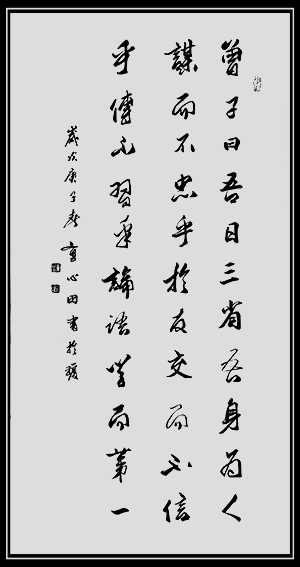 曾子曰吾日三省吾身为人
謀而不忠乎於友交而不信
乎傳不習乎論語學而第一
歲次庚子 心田書於